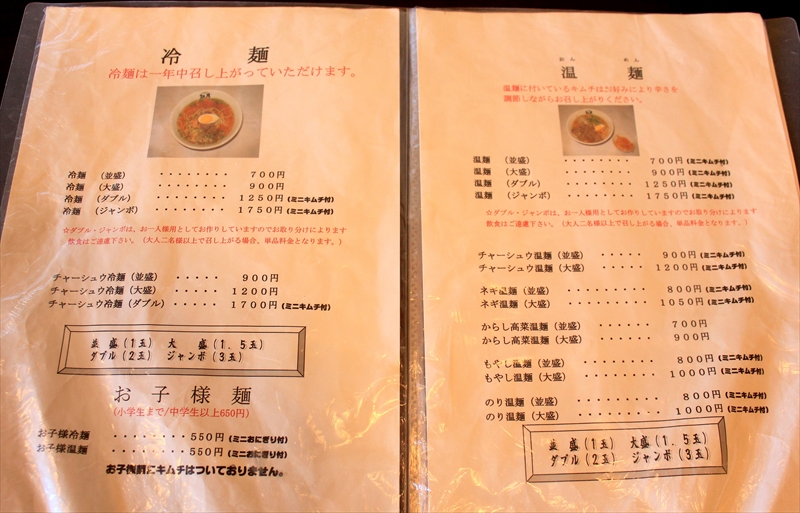 冷麺
冷麺は一年中召し上がっていただけます。
冷麺 (並盛) ········ 700円
冷麺 (大盛) ········ 900円
冷麺 (ダブル) ········ 1250円(ミニキムチ付)
冷麺 (ジャンボ) ······ 1750円(ミニキムチ付)
☆ダブル・ジャンボは、お一人様用としてお作りしていますのでお取り分けによります
飲食はご遠慮下さい。(大人二名様以上で召し上がる場合、単品料金となります。)
チャーシュウ冷麺(並盛) ····· 900円
チャーシュウ冷麺(大盛) ····· 1200円
チャーシュウ冷麺(ダブル) ····· 1700円(ミニキムチ付)
並 盛(1玉) 大 盛(1.5玉)
ダブル(2玉) ジャンボ(3玉)
お子様麺
(小学生まで/中学生以上650円)
お子様冷麺 ········ 550円(ミニおにぎり付)
お子様温麺 ········ 550円(ミニおにぎり付)
お子様麺にキムチはついておりません。
おん めん
温麺
温麺に付いているキムチはお好みにより辛さを
調節しながらお召し上がりください。
温麺 (並盛) ········ 700円(ミニキムチ付)
温麺 (大盛) ········ 900円(ミニキムチ付)
温麺 (ダブル) ········ 1250円(ミニキムチ付)
温麺 (ジャンボ) ······ 1750円(ミニキムチ付)
☆ダブル・ジャンボは、お一人様用としてお作りしていますのでお取り分けによります
飲食はご遠慮下さい。(大人二名様以上で召し上がる場合、単品料金となります。)
チャーシュウ温麺(並盛) ····· 900円(ミニキムチ付)
チャーシュウ温麺(大盛) ····· 1200円(ミニキムチ付)
ネギ温麺(並盛) ········ 800円(ミニキムチ付)
ネギ温麺(大盛) ········ 1050円(ミニキムチ付)
からし高菜温麺(並盛) ······ 700円
からし高菜温麺(大盛) ······ 900円
もやし温麺(並盛) ········ 800円(ミニキムチ付)
もやし温麺(大盛) ········ 1000円(ミニキムチ付)
のり温麺(並盛) ········· 800円(ミニキムチ付)
のり温麺(大盛) ········· 1000円(ミニキムチ付)
並 盛(1玉) 大 盛(1.5玉)
ダブル(2玉) ジャンボ(3玉)